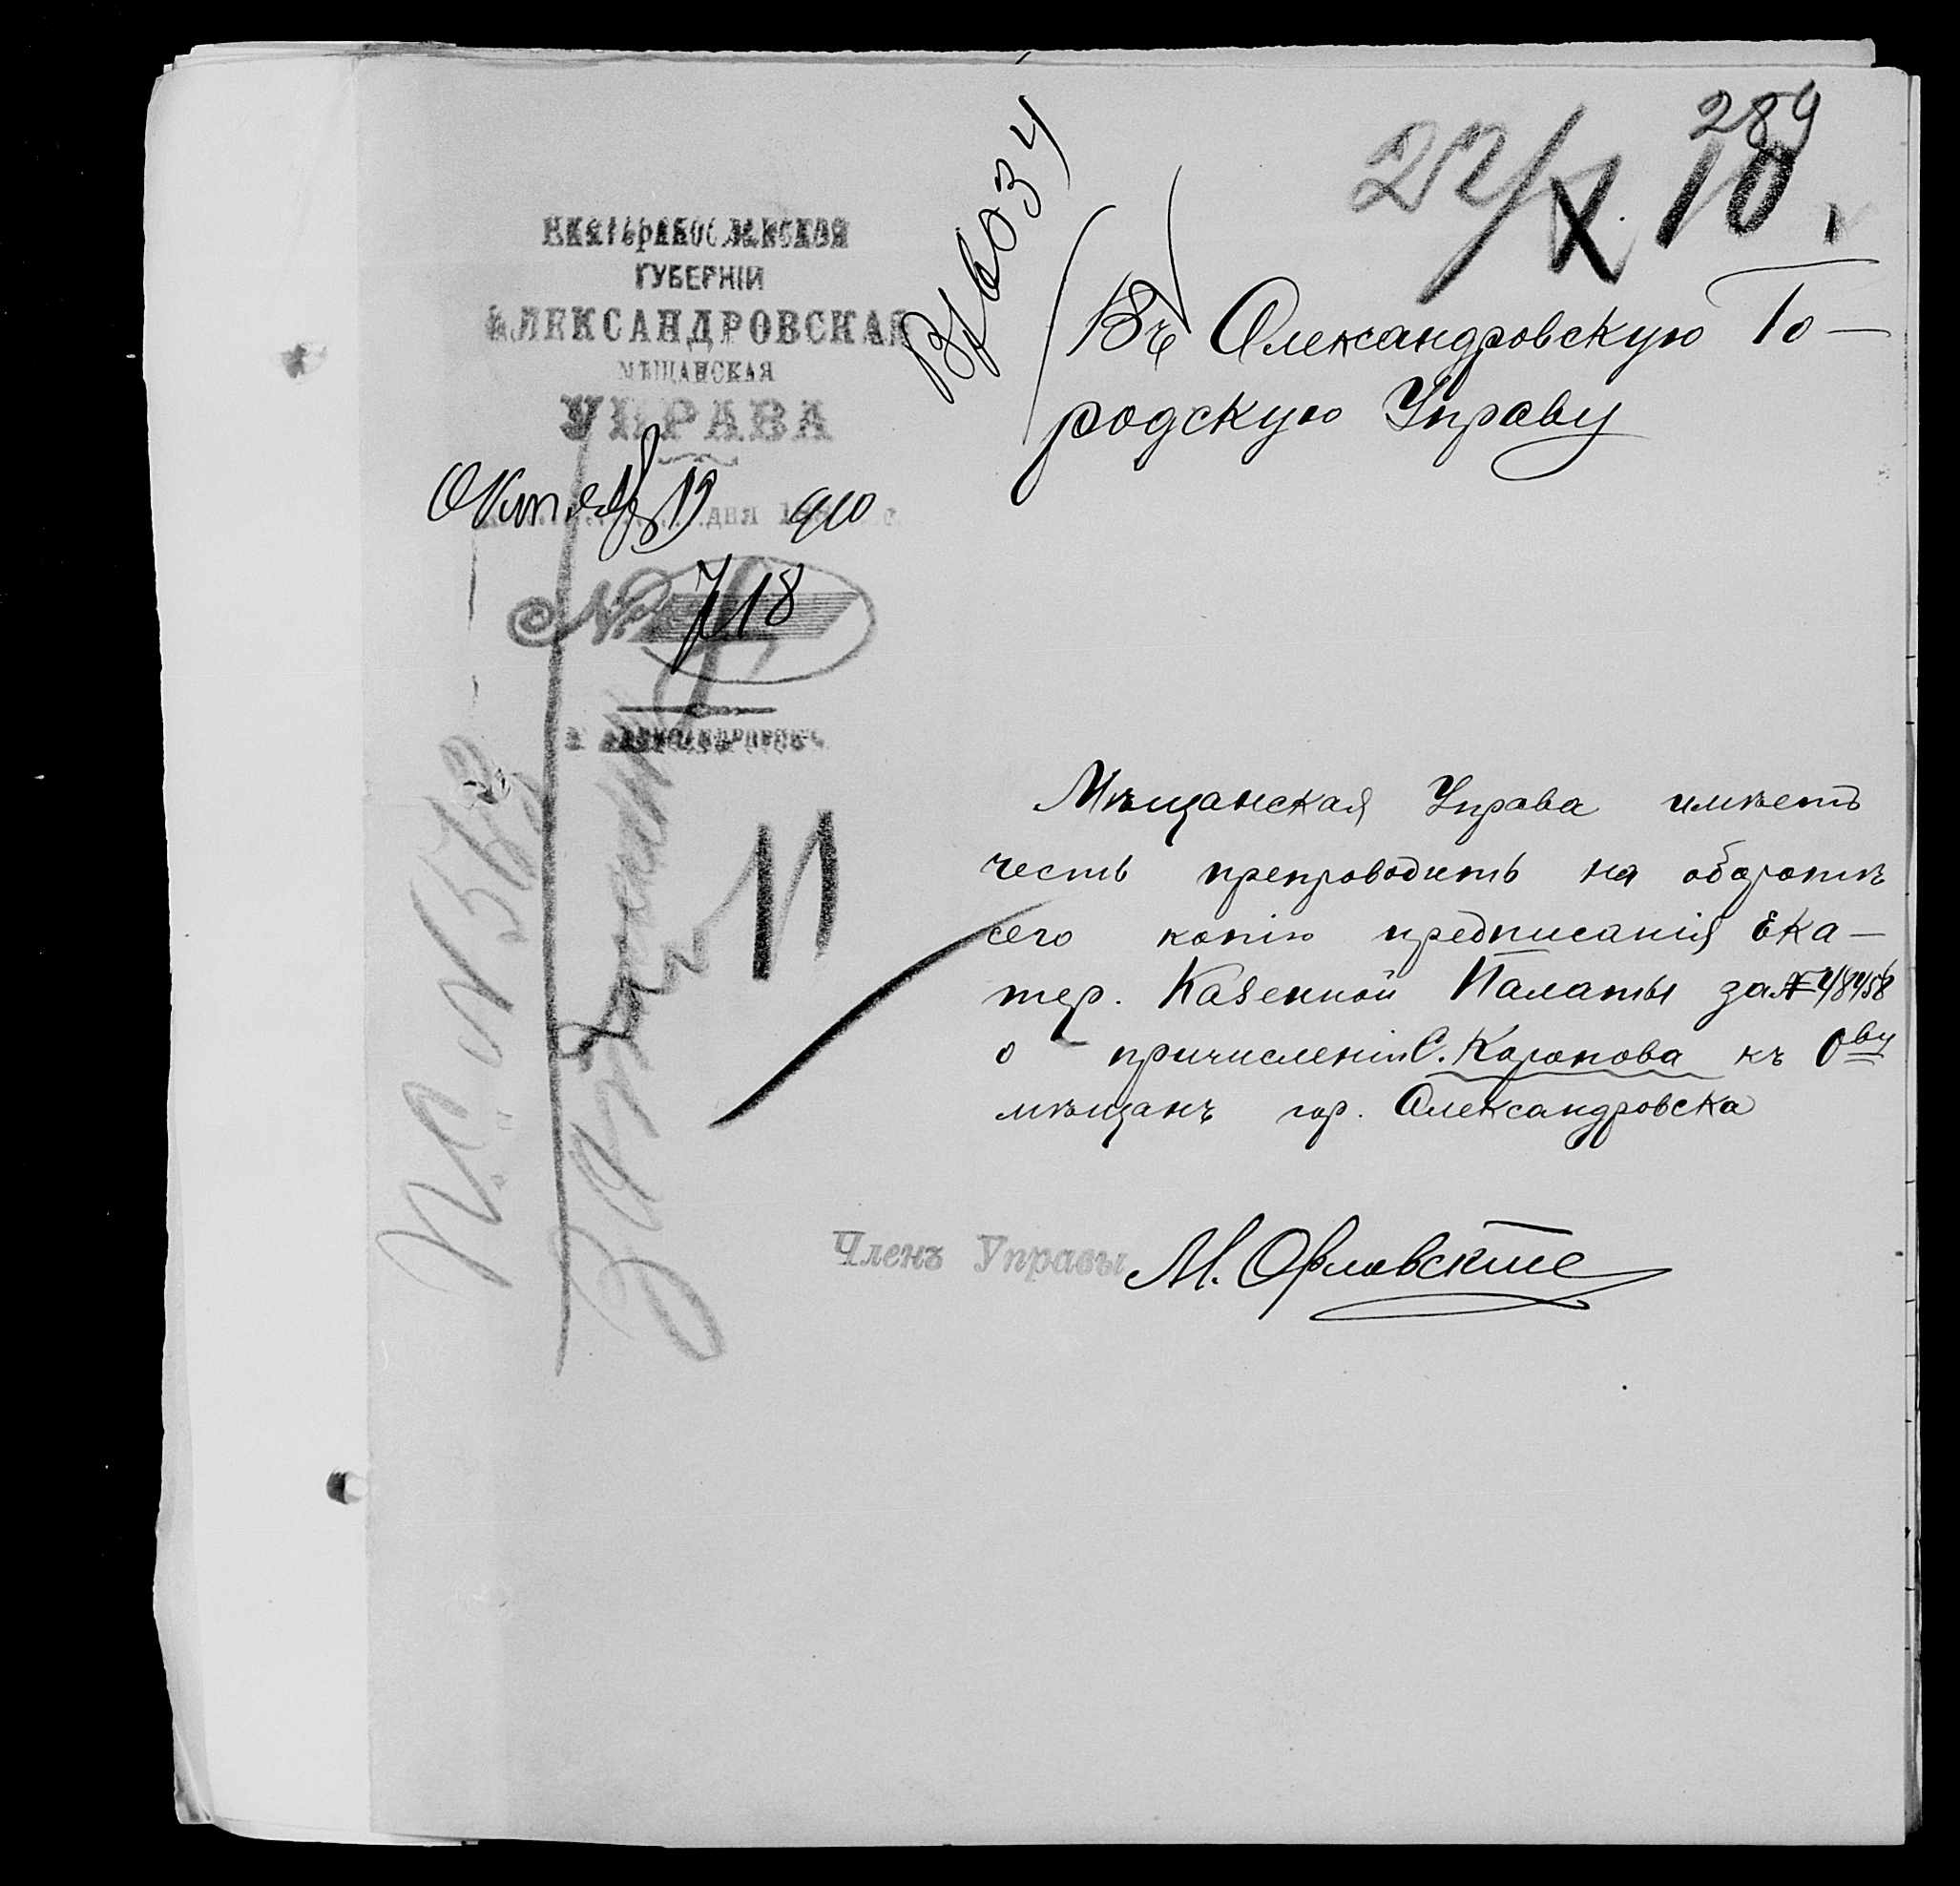 289
22/X 10
Вх 6034
ЕКАТЕРИНОСЛАВСКОЙ
ГУБЕРНІИ
АЛЕКСАНДРОВСКАЯ
МѢЩАНСКАЯ
УПРАВА
Октября 19 дня 910
№ 718
г. АЛЕКСАНДРОВСКЪ
Въ Александровскую Го-
родскую Управу
Мѣщанская Управа имѣетъ
честь препроводить на оборотѣ
сего копію предписанія Ека-
тер. Казенной Палаты за №
о причисленіи С. Каропова къ Ову
мѣщанъ гор. Александровска
Членъ Управы М. Орловскій
11